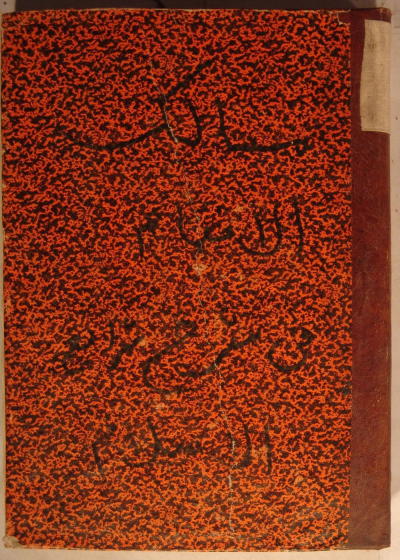 مسالك
الافهام
في شرح شرايع
الاسلام